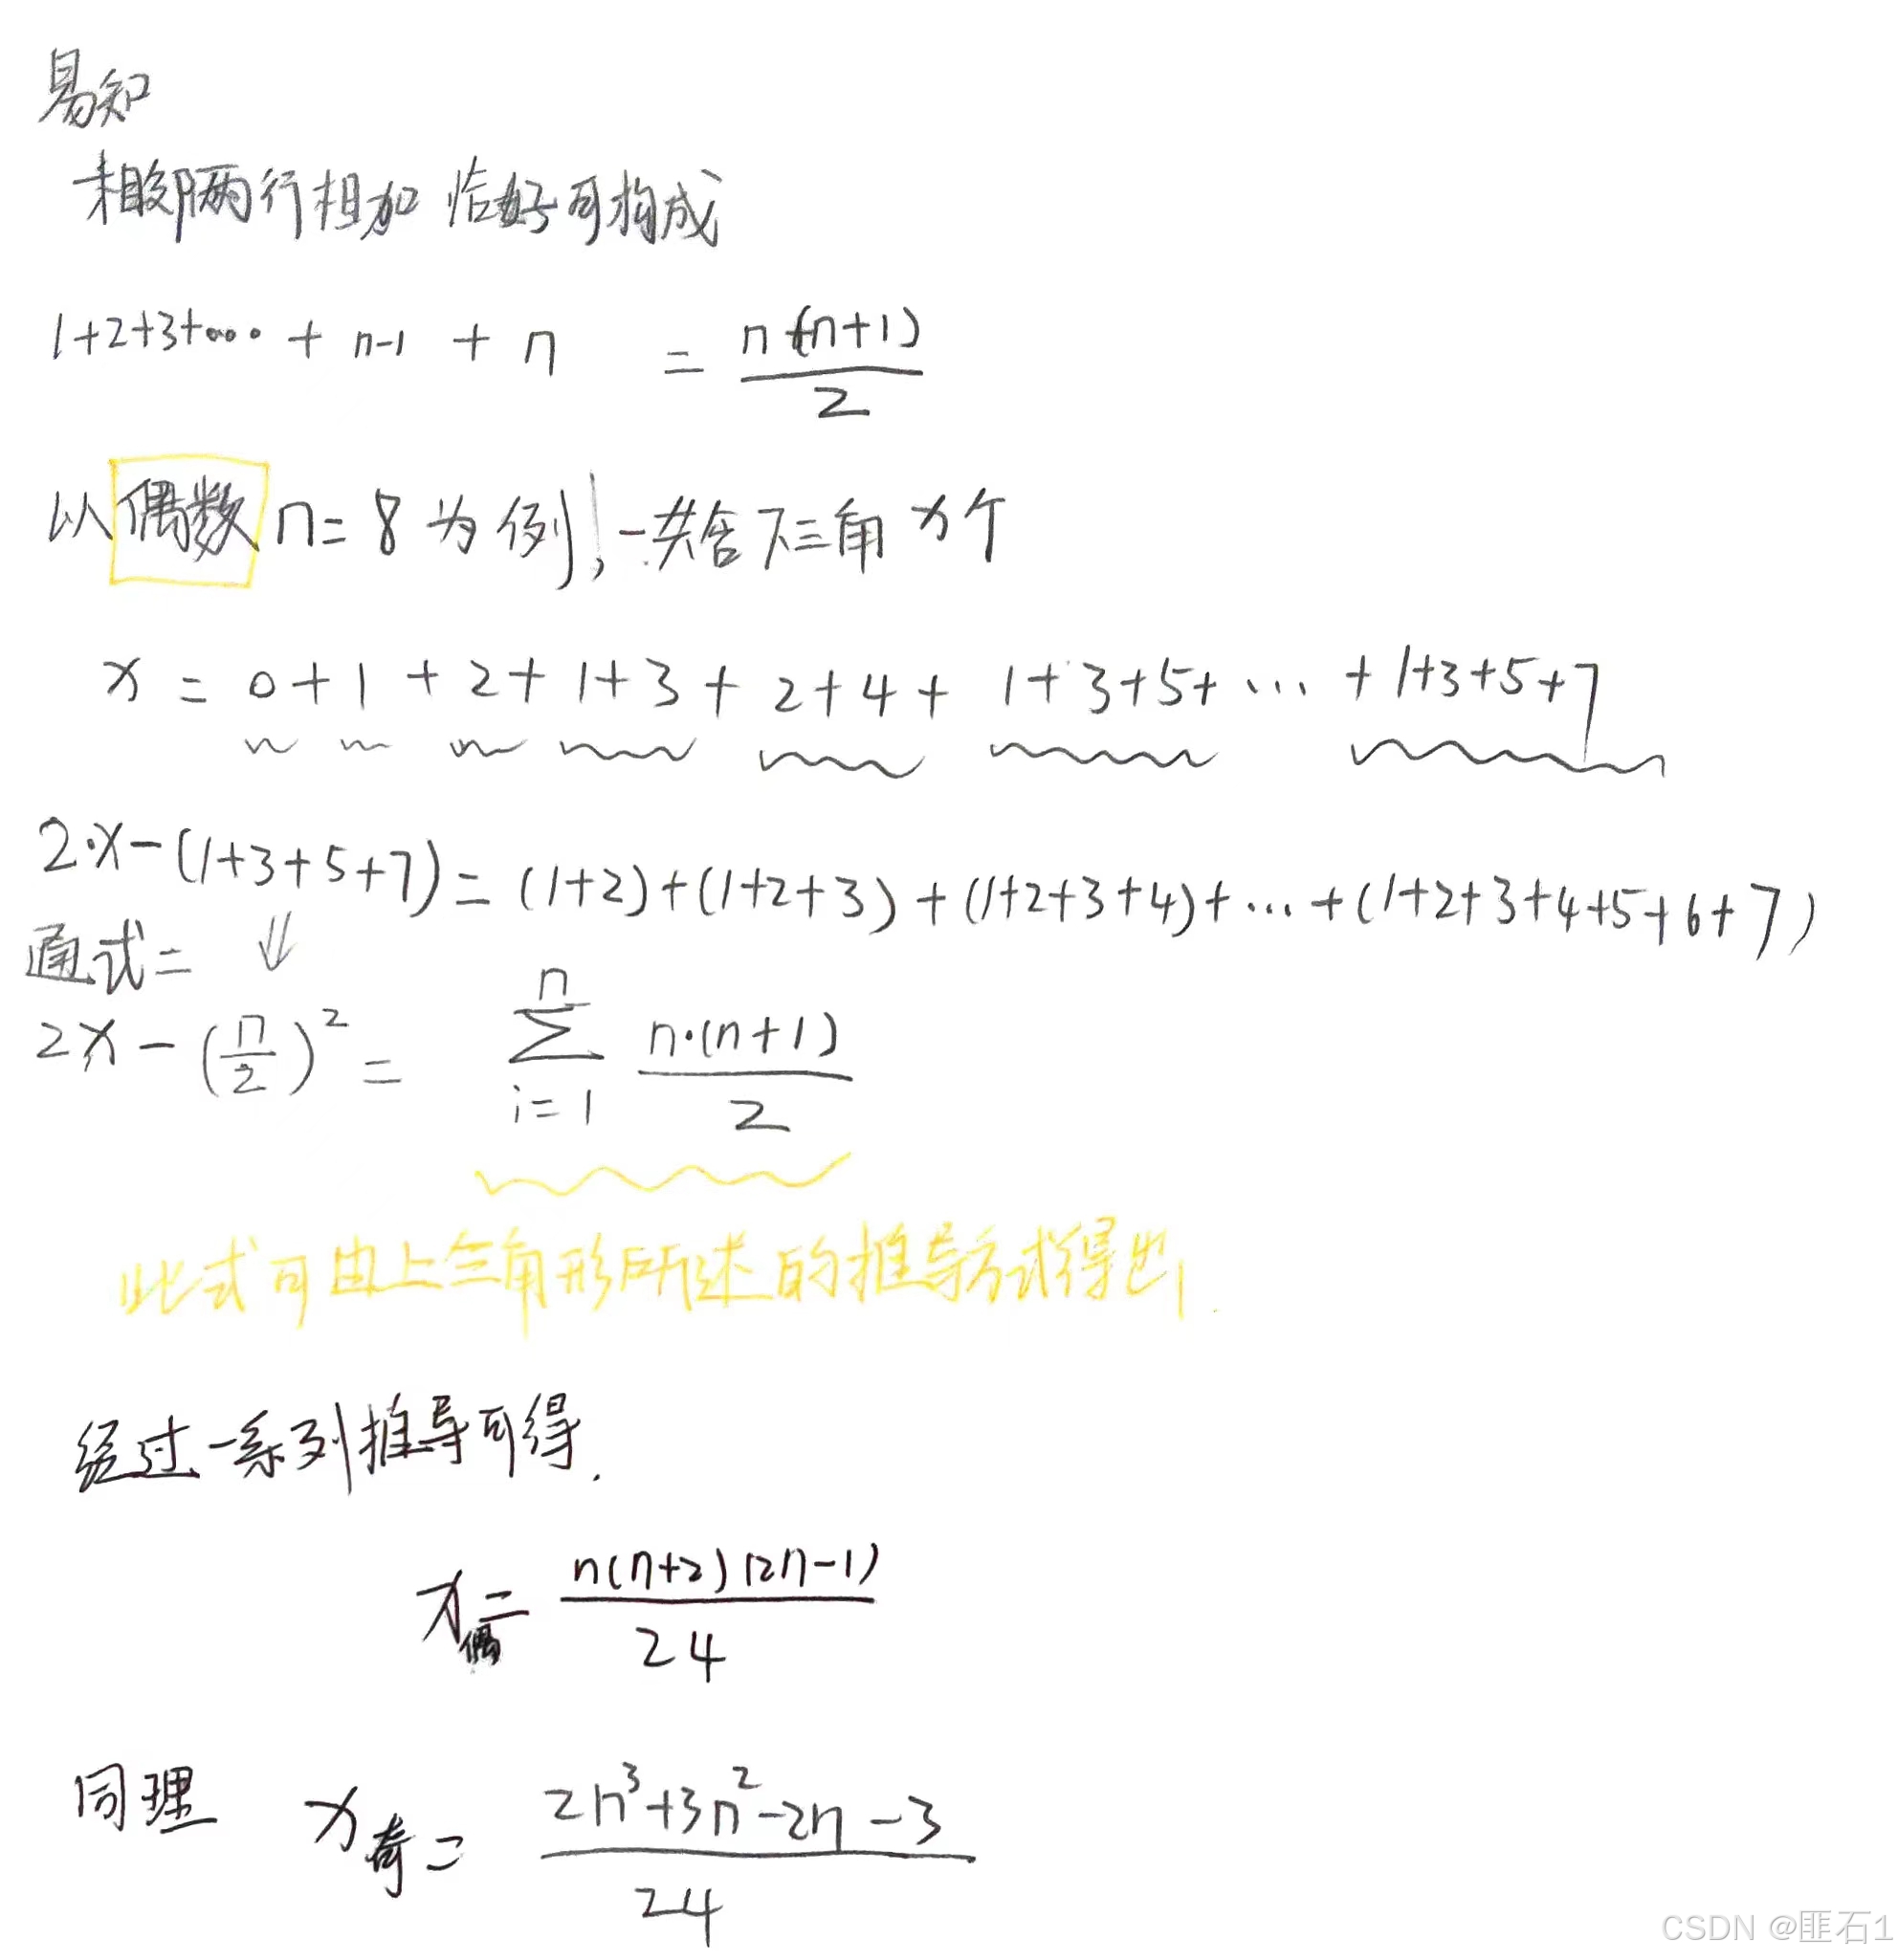 易知
相邻两行相加 恰好可构成
1+2+3+... + n-1 + n = n·(n+1)/2
以偶数 n=8 为例，一共含下三角 x个
x = 0+1+2+1+3+2+4+1+3+5+...+1+3+5+7
2·x-(1+3+5+7)=(1+2)+(1+2+3)+(1+2+3+4)+...+(1+2+3+4+5+6+7)
通式=
2x-(n/2)²= ∑_{i=1}^{n} n·(n+1)/2
此式可由上三角形所述的推导方式得出.
经过一系列推导可得.
x偶= n(n+2)(2n-1)/24
同理 x奇= 2n³+3n²-2n-3/24
CSDN @匪石1